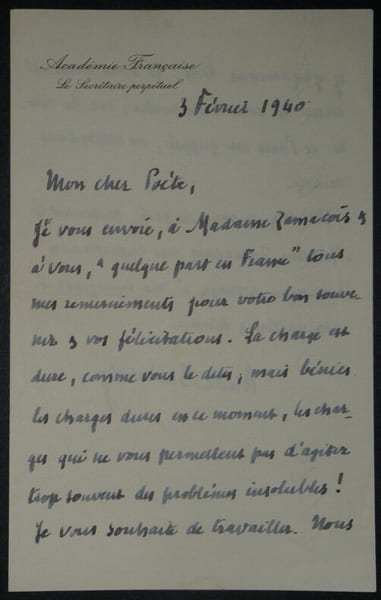 Académie Française
Le Secrétaire perpétuel
3 Février 1940
Mon cher Poète,
Je vous envoie, à Madame Zamacoïs &
à vous, "quelque part en France" tous
mes remerciements pour votre bon souve-
nir & vos félicitations. La charge est
dure, comme vous le dites, mais bénies
les charges dures en ce moment, les char-
ges qui ne vous permettent pas d'agiter
trop souvent des problèmes insolubles !
Je vous souhaite de travailler. Nous